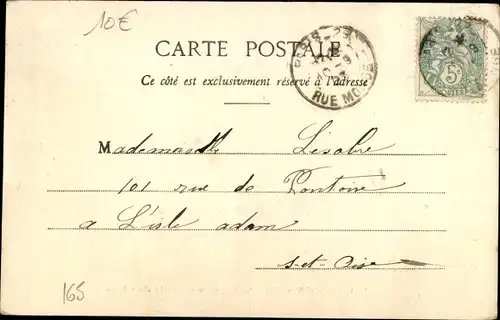 10€
CARTE POSTALE
Ce côté est exclusivement réservé à l'adresse
PARIS-23
RUE MO
5c
Mademoiselle Lesobre
101 rue de Pontoise
a L'isle adam
S-et-Oise
165